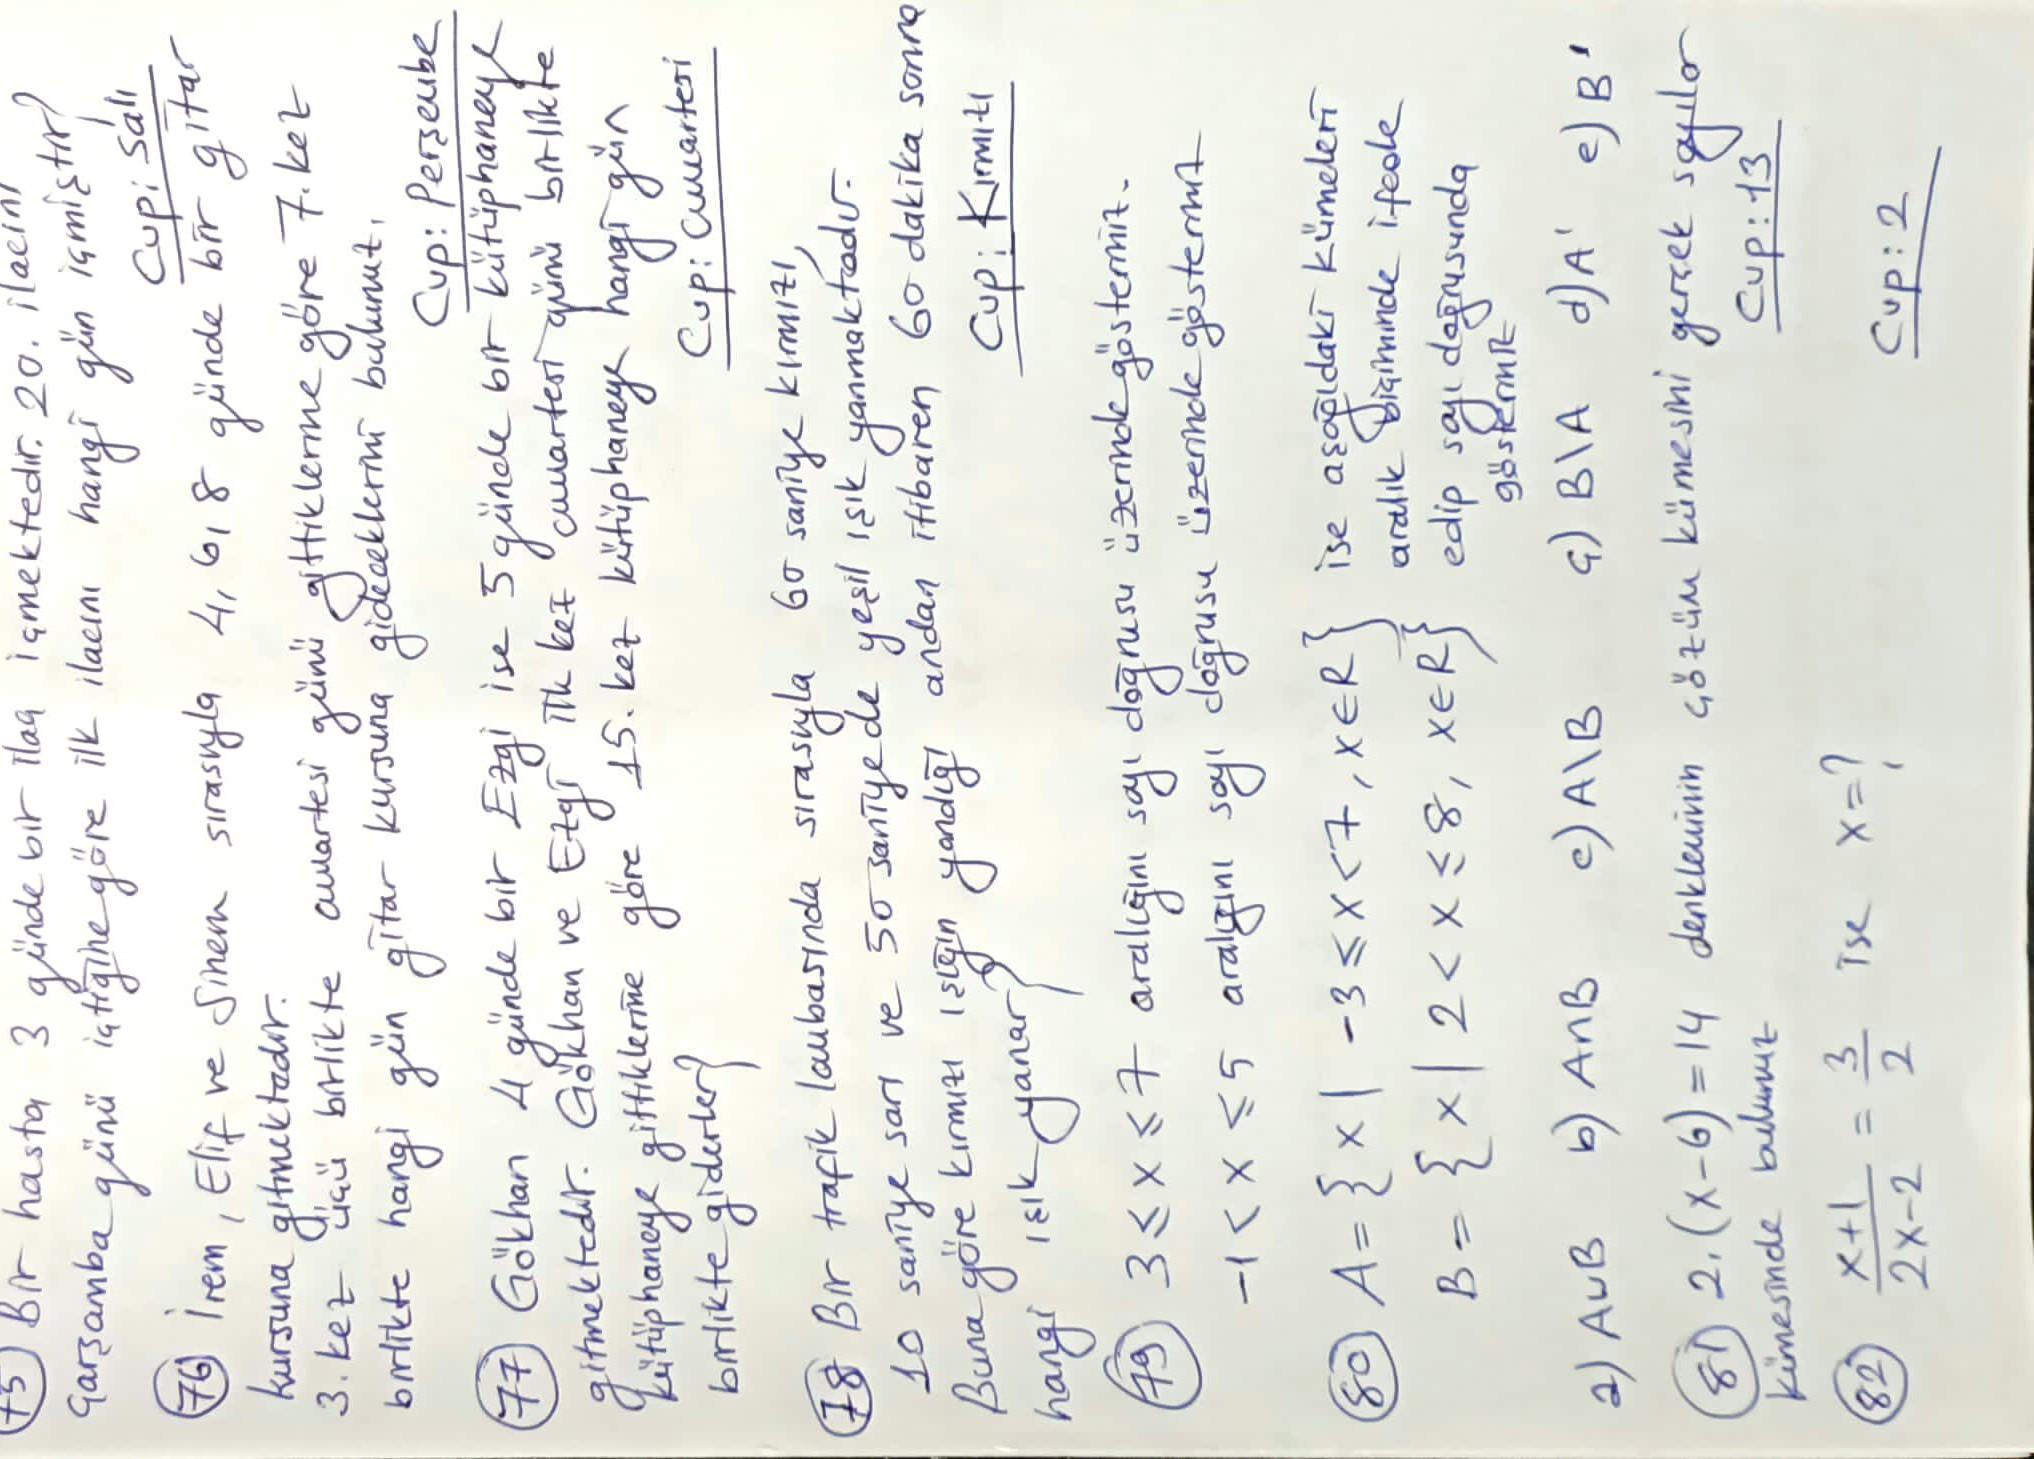 75) Bir hasta 3 günde bir ilaç içmektedir. 20. ilacını
çarşamba günü içtiğine göre ilk ilacını hangi gün içmiştir?
Cvp: Salı
76) İrem, Elif ve Sinem sırasıyla 4, 6, 8 günde bir gitar
kursuna gitmektedir.
3. kez üçü birlikte cumartesi günü gittiklerine göre 7. kez
birlikte hangi gün gitar kursuna gideceklerini bulunuz.
Cvp: Perşembe
77) Gökhan 4 günde bir Ezgi ise 5 günde bir kütüphaneye
gitmektedir. Gökhan ve Ezgi ilk kez cumartesi günü birlikte
kütüphaneye gittiklerine göre 15. kez kütüphaneye hangi gün
birlikte giderler?
Cvp: Cumartesi
78) Bir trafik lambasında sırasıyla 60 saniye kırmızı,
10 saniye sarı ve 50 saniyede yeşil ışık yanmaktadır.
Buna göre kırmızı ışığın yandığı andan itibaren 60 dakika sonra
hangi ışık yanar?
Cvp: Kırmızı
79) 3 ≤ x ≤ 7 aralığını sayı doğrusu üzerinde gösteriniz.
-1 < x ≤ 5 aralığını sayı doğrusu üzerinde gösteriniz
80) A = {x | -3 ≤ x < 7, x ∈ R} ise aşağıdaki kümeleri
aralık biçiminde ifade
B = {x | 2 < x ≤ 8, x ∈ R} edip sayı doğrusunda
gösteriniz
a) A∪B b) A∩B c) A\B ç) B\A d) A' e) B'
81) 2.(x-6) = 14 denkleminin çözüm kümesini gerçek sayılar
kümesinde bulunuz
Cvp: 13
82) x+1/2x-2 = 3/2 ise x=?
Cvp: 2